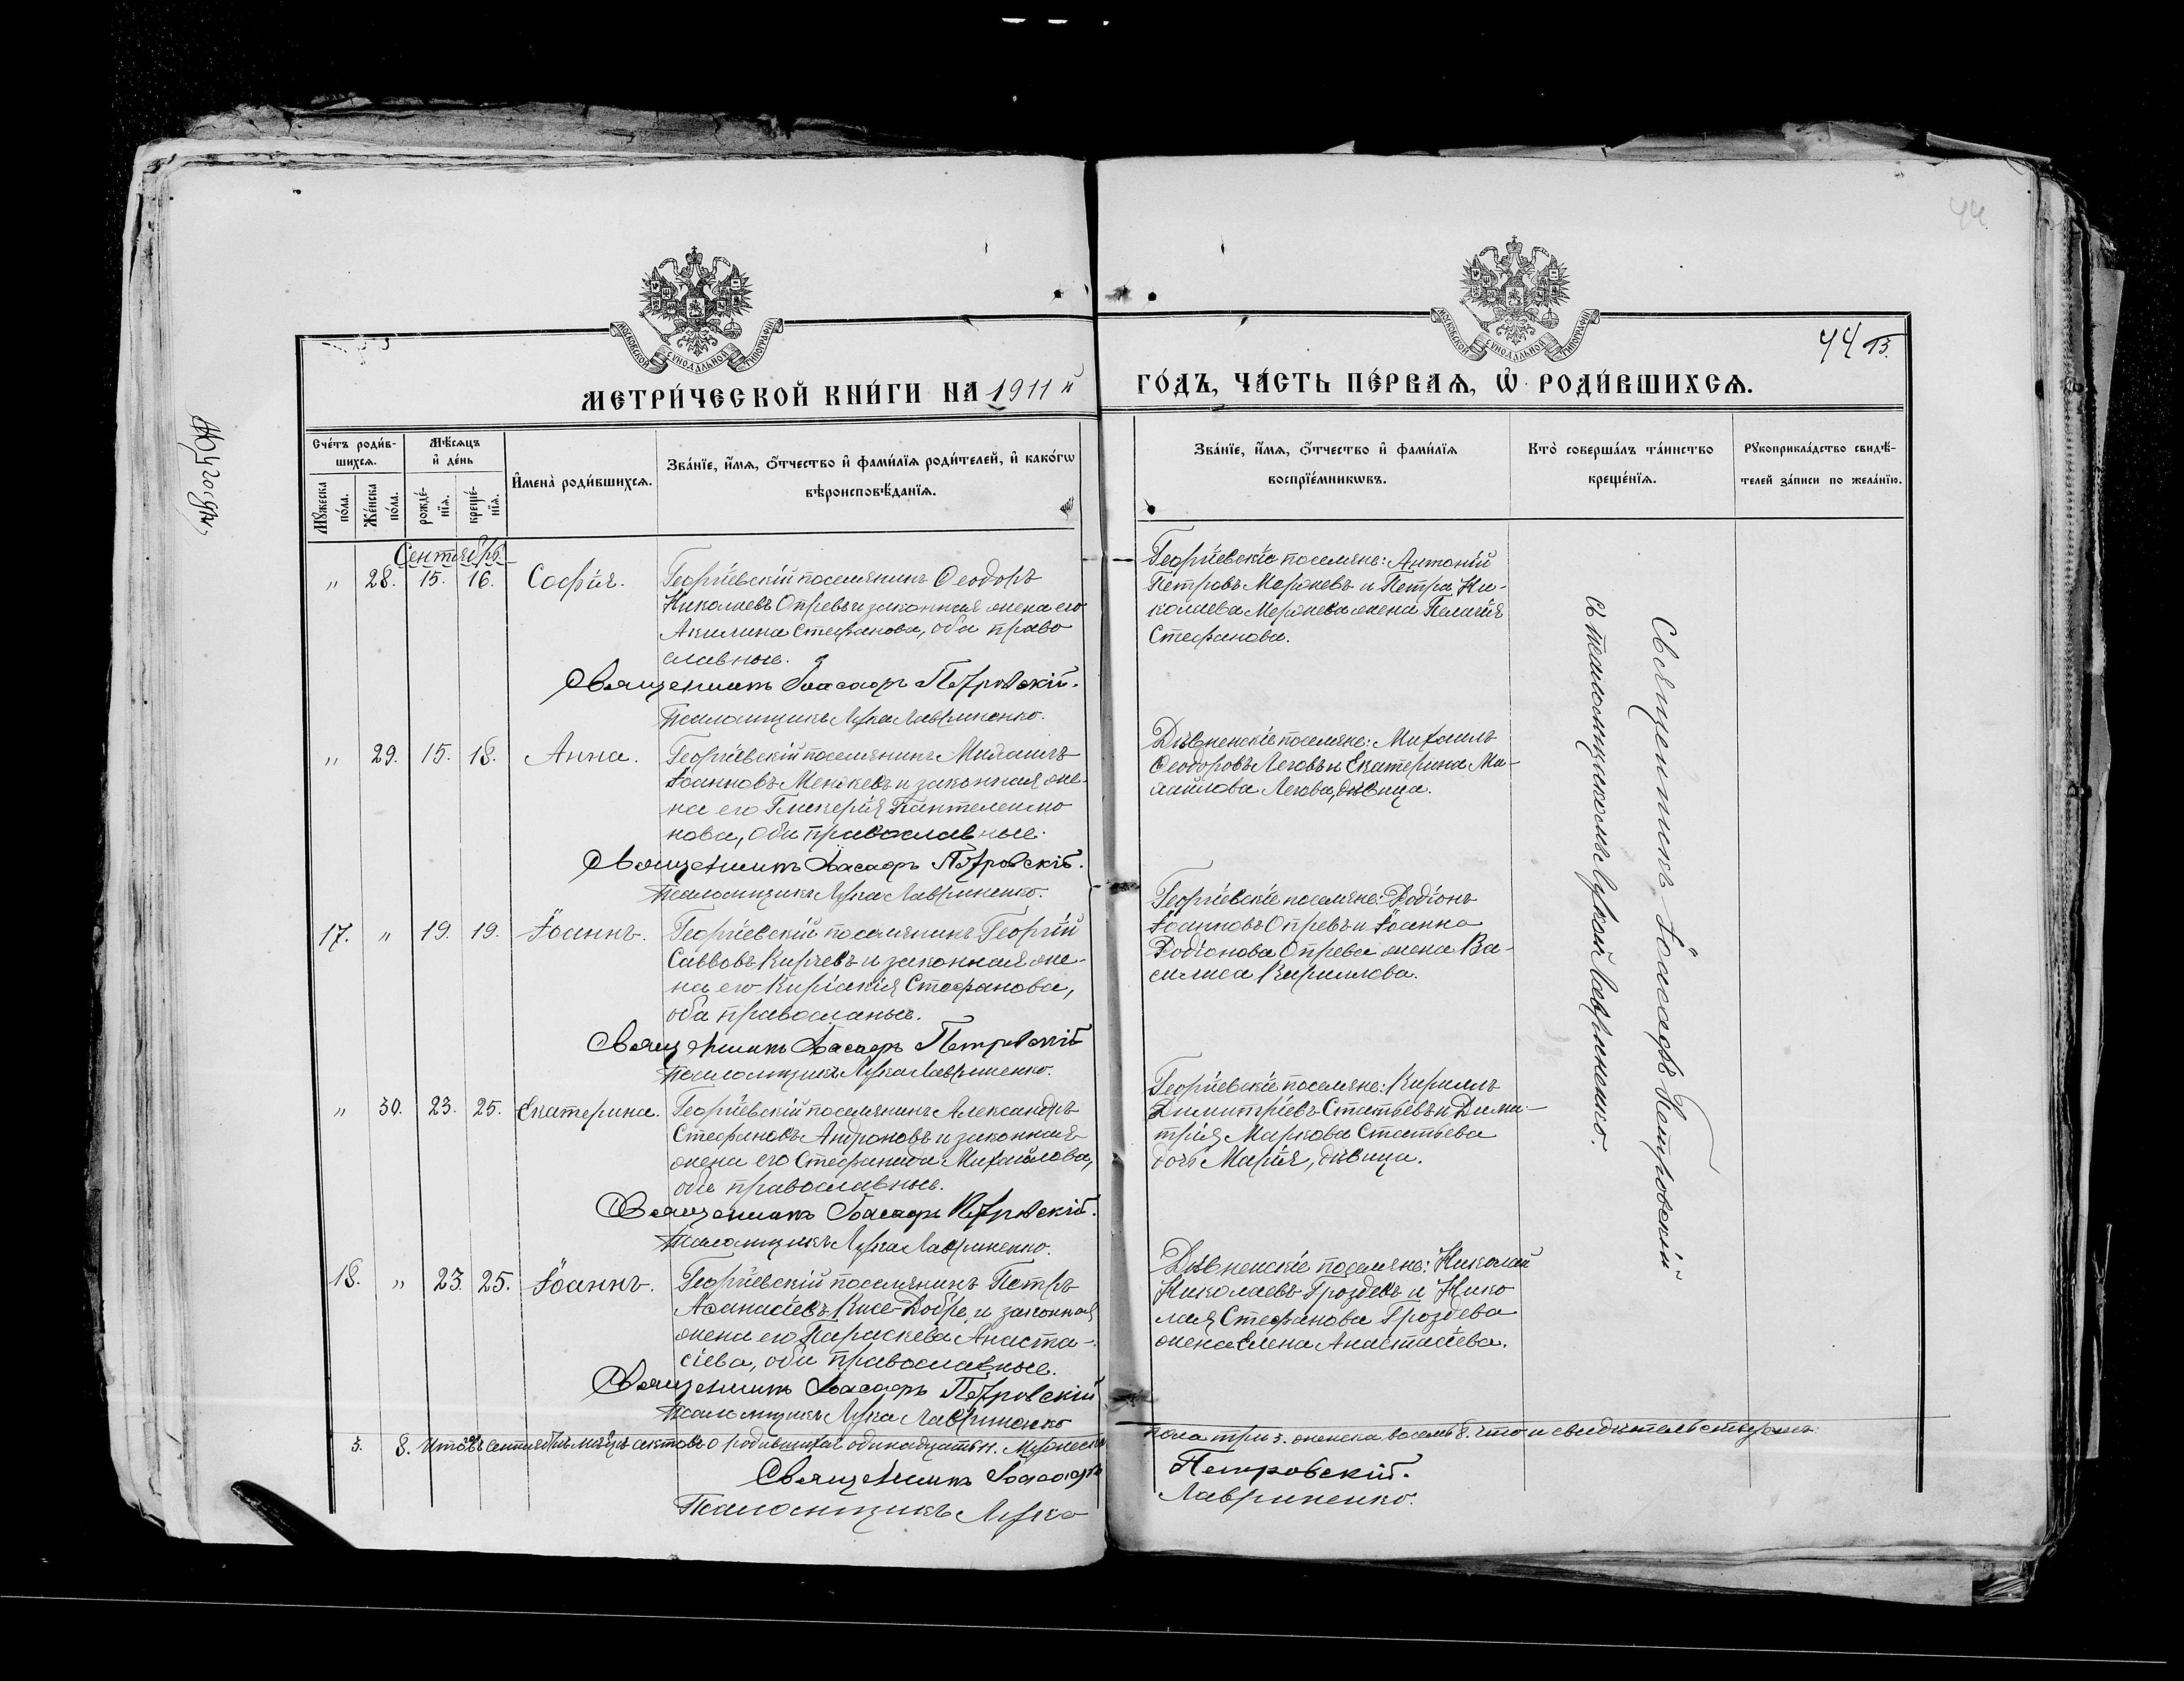 44
44 13.
МОСКОВСКОЙ СУНОДАЛЬНОЙ ТИПОГРАФІИ
МОСКОВСКОЙ СУНОДАЛЬНОЙ ТИПОГРАФІИ
МЕТРИ́ЧЕСКОЙ КНИ́ГИ НА 1911 й
ГО́ДЪ, ЧА́СТЬ ПЕ́РВАѦ, Ѡ҆ РОДИ́ВШИХСѦ.
Сче́тъ роди́в-
шихсѧ.
Мѣ́сѧцъ
и҆ де́нь
Мꙋ́жеска
по́ла.
Же́нска
по́ла.
рожде́-
нїѧ.
креще́-
нїѧ.
И҆мена̀ роди́вшихсѧ.
Зва́нїе, и҆́мѧ, ѻ҆́тчество и҆ фами́лїѧ роди́телей, и҆ како́гѡ
вѣроисповѣ́данїѧ.
Зва́нїе, и҆́мѧ, ѻ҆́тчество и҆ фами́лїѧ
воспрїе́мникѡвъ.
Кто̀ соверша́лъ та́инство
креще́нїѧ.
Рꙋкоприкла́дство свидѣ́-
телей за́писи по жела́нїю.
Сентябрь
" 28. 15. 16. Софія. Георгіевскій поселянинъ Ѳеодоръ
Николаевъ Опревъ и законная жена его
Акилина Стефанова, оба право
славные.
Священникъ Іоасафъ Петровскій.
Псаломщикъ Лука Лавриненко.
Георгіевскіе поселяне: Антоній
Петровъ Мержевъ и Петра Ни-
колаева Мержева жена Пелагія
Стефанова.
" 29. 15. 18. Анна. Георгіевскій поселянинъ Михаилъ
Іоанновъ Менжевъ и законная же-
на его Гликерія Пантелеимо
нова, оба православные.
Священникъ Іоасафъ Петровскій.
Псаломщикъ Лука Лавриненко.
Дивненскіе поселяне: Михаилъ
Ѳеодоровъ Леговъ и Екатерина Ми-
хайлова Легова, дѣвица.
17. " 19. 19. Іоаннъ. Георгіевскій поселянинъ Георгій
Саввовъ Кирчевъ и законная же-
на его Киріакія Стефанова,
оба православные.
Священникъ Іоасафъ Петровскій
Псаломщикъ Лука Лавриненко.
Георгіевскіе поселяне: Родіонъ
Іоанновъ Опревъ и Іоанна
Родіонова Опрева жена Ва-
силиса Кириллова.
" 30. 23. 25. Екатерина. Георгіевскій поселянинъ Александръ
Стефановъ Андроновъ и законная
жена его Стефанида Михайлова,
оба православные.
Священникъ Іоасафъ Петровскій.
Псаломщикъ Лука Лавриненко.
Георгіевскіе поселяне: Кириллъ
Димитріевъ Статьевъ и Дими-
трія Маркова Статьева
дочь Марія, дѣвица.
18. " 23. 25. Іоаннъ. Георгіевскій поселянинъ Петръ
Аѳанасіевъ Кисе-Добре, и законная
жена его Параскева Анаста-
сіева, оба православные.
Священникъ Іоасафъ Петровскій
Псаломщикъ Лука Лавриненко
Дивненскіе поселяне: Николай
Николаевъ Гроздевъ и Нико
лая Стефанова Гроздева
жена Елена Анастасіева.
Священникъ Іоасафъ Петровскій
съ псаломщикомъ Лукой Лавриненко.
3. 8. Итого въ сентябрѣ мѣсяцѣ актовъ о родившихся одинадцать 11. Мужеска
пола три 3. женска восемь 8. что и свидѣтельствуемъ:
Священникъ Іоасафъ Петровскій.
Псаломщикъ Лука Лавриненко.